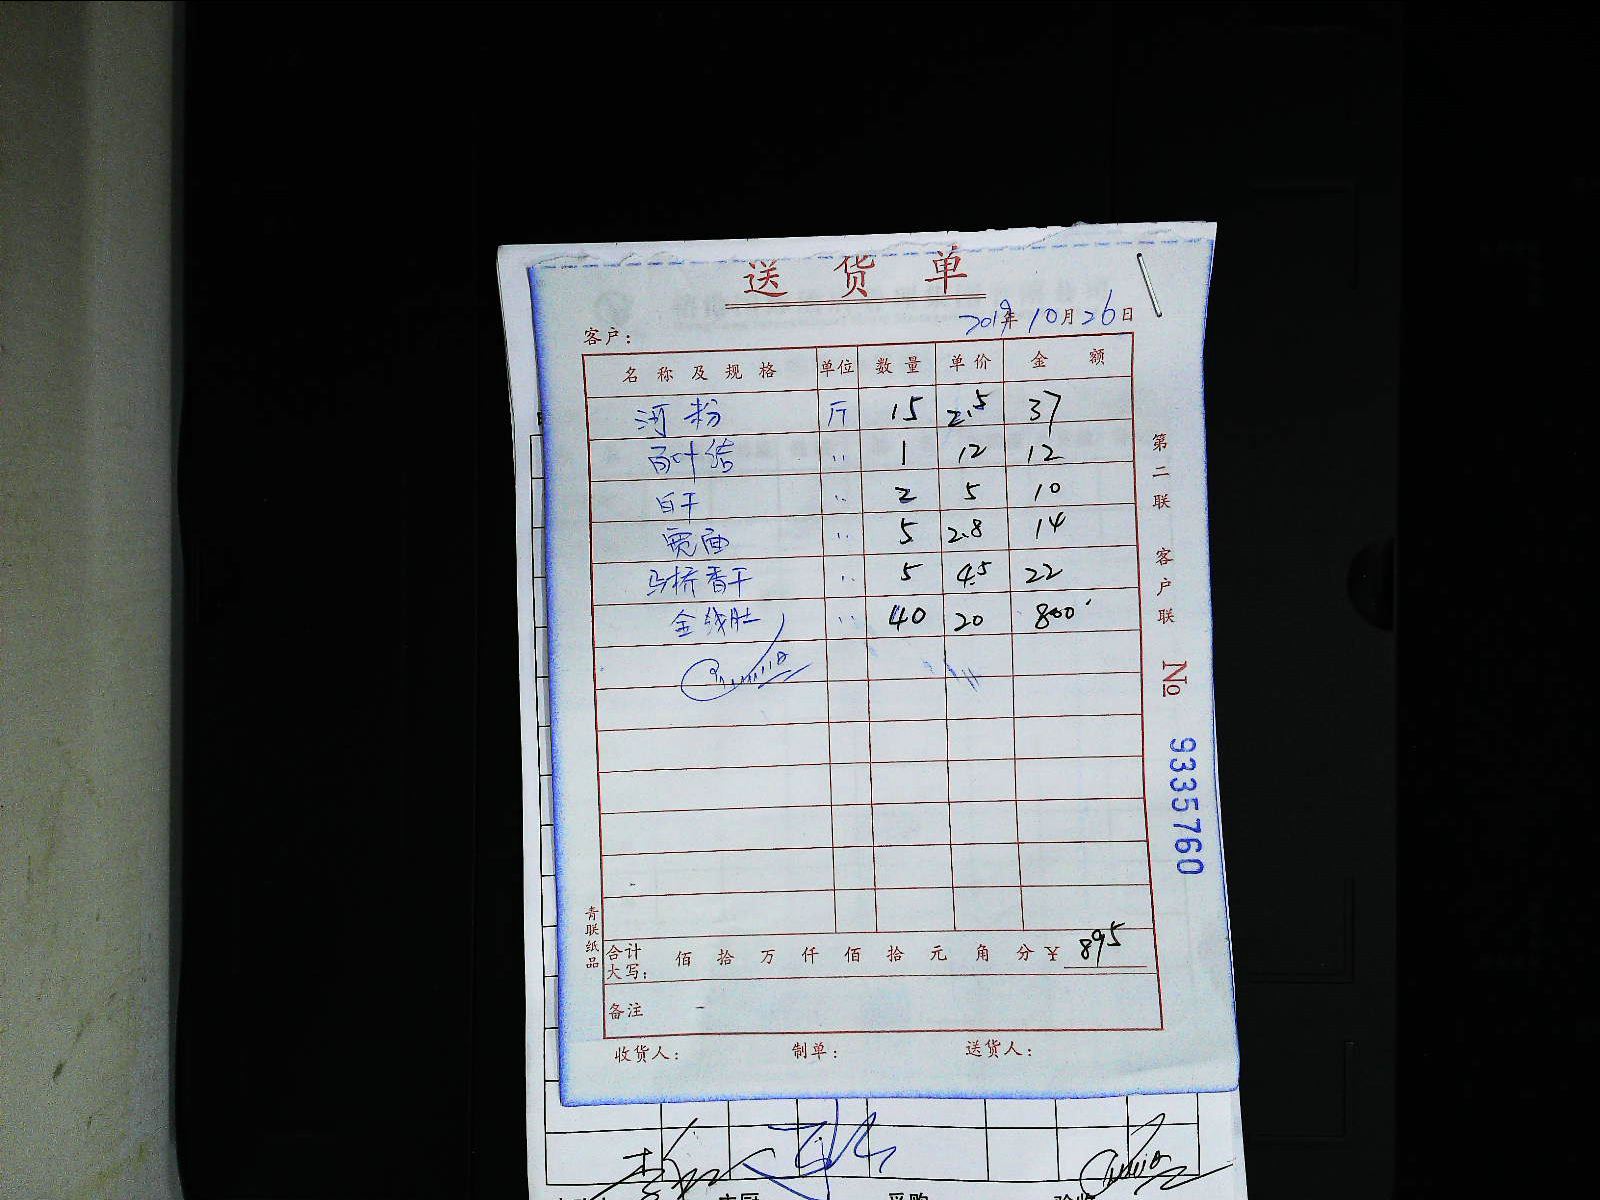 送货单
2019年10月26日
客户：
名称及规格 单位 数量 单价 金额
河粉 斤 15 2.5 37
百叶结 〃 1 12 12
白干 〃 2 5 10
宽面 〃 5 2.8 14
马桥香干 〃 5 4.5 22
金钱肚 〃 40 20 800
合计
大写： 佰 拾 万 仟 佰 拾 元 角 分 ¥ 895
备注
收货人： 制单： 送货人：
第二联 客户联 No 9335760
青联纸品
采购